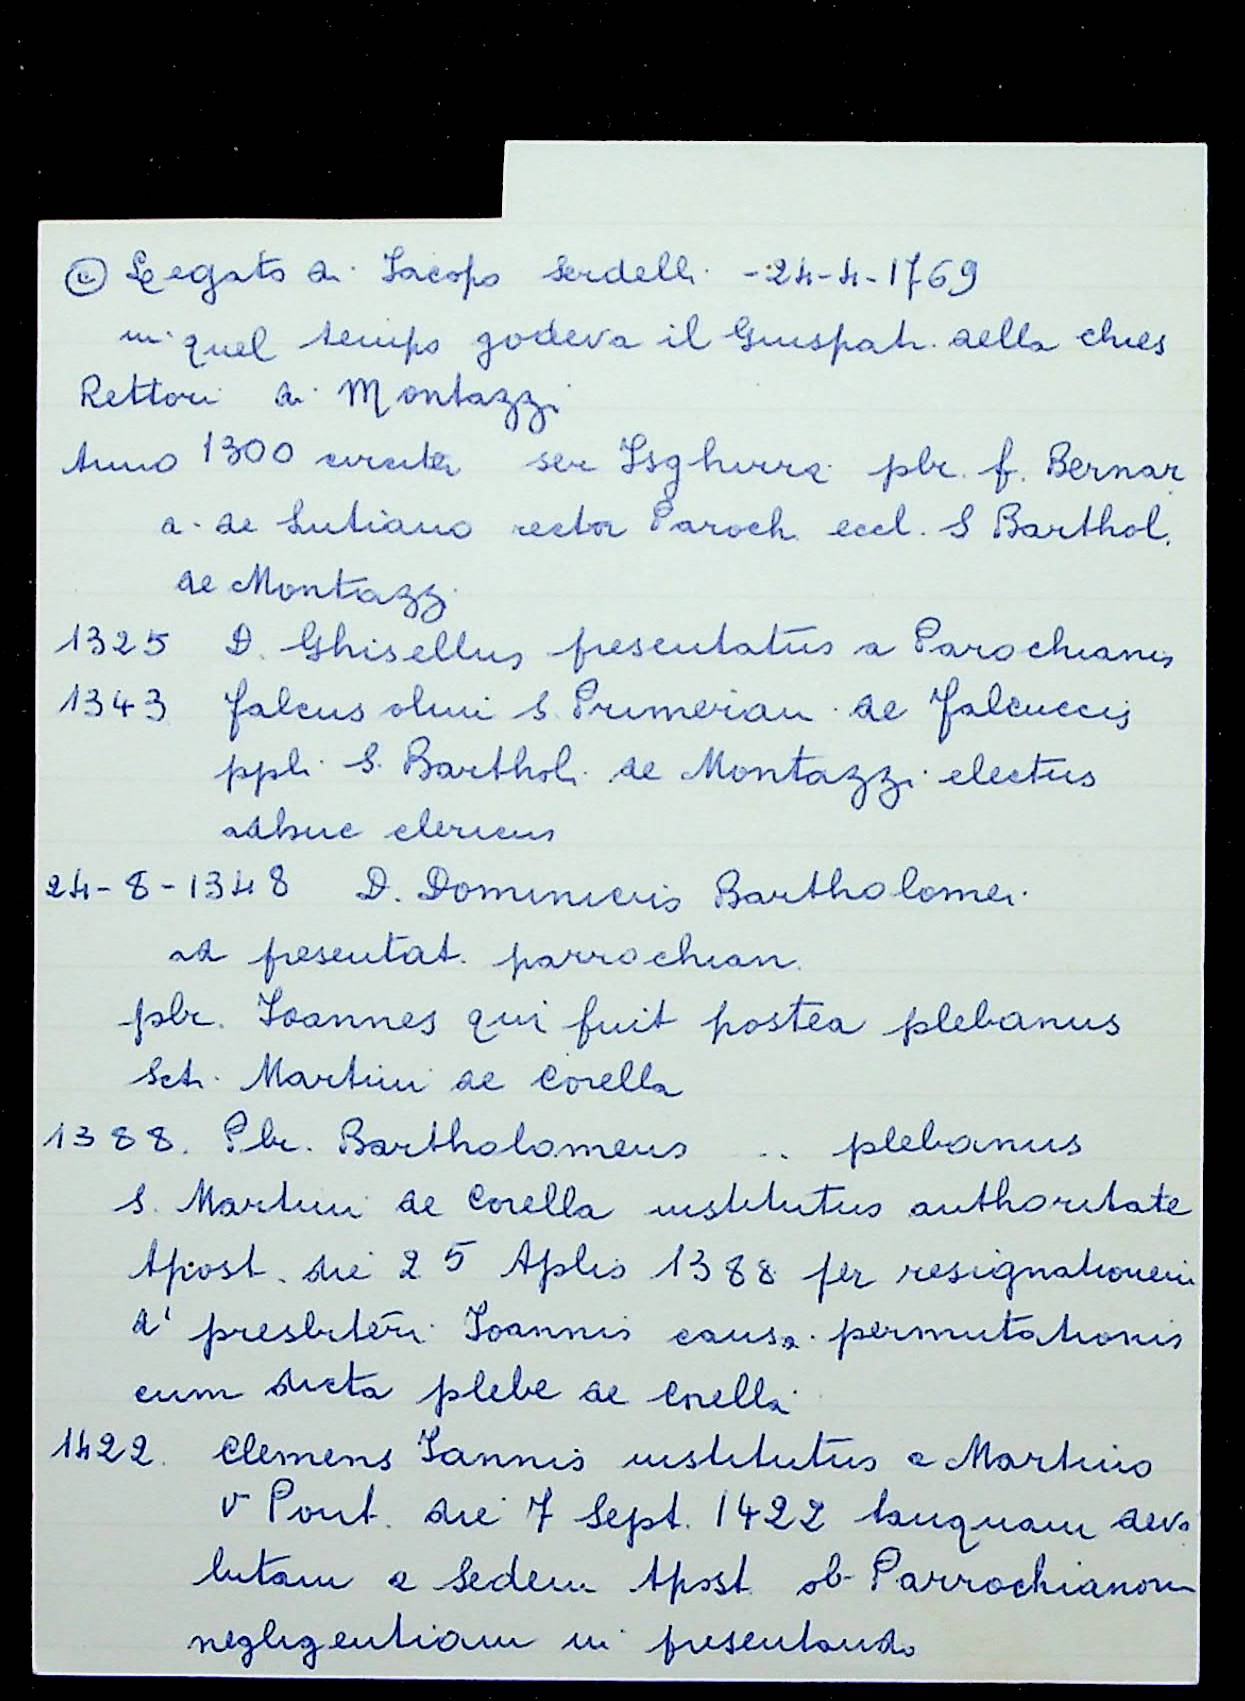 © Legato di Iacopo Serdelli - 24-4-1769
in quel tempo godeva il Giuspatr. della chies
Rettori di Montazzi
Anno 1300 circiter ser pbr. f. Bernar
d. de Lutiano rector Paroch. eccl. S Barthol.
de Montazzi
1325 D. Ghisellus presentatus a Parochianis
1343 Falcus olim S. de Falcuccis
ppli S. Bartholi de Montazzi electus
adhuc clericus
24-8-1348 D. Dominicus Bartholomei
ad presentat. parrochian.
pbr. Ioannes qui fuit postea plebanus
Scti Martini de Corella
1388. Pbr. Bartholomeus .. plebanus
S. Martini de Corella institutus authoritate
Apost. die 25 Aplis 1388 per resignationem
d' presbiteri Ioannis causa permutationis
cum dicta plebe de Corella
1422. Clemens Iannis institutus a Martino
V Pont. die 7 Sept. 1422 tanquam devo
lutam a Sedem Apost. ob Parrochianorum
negligentiam in presentando